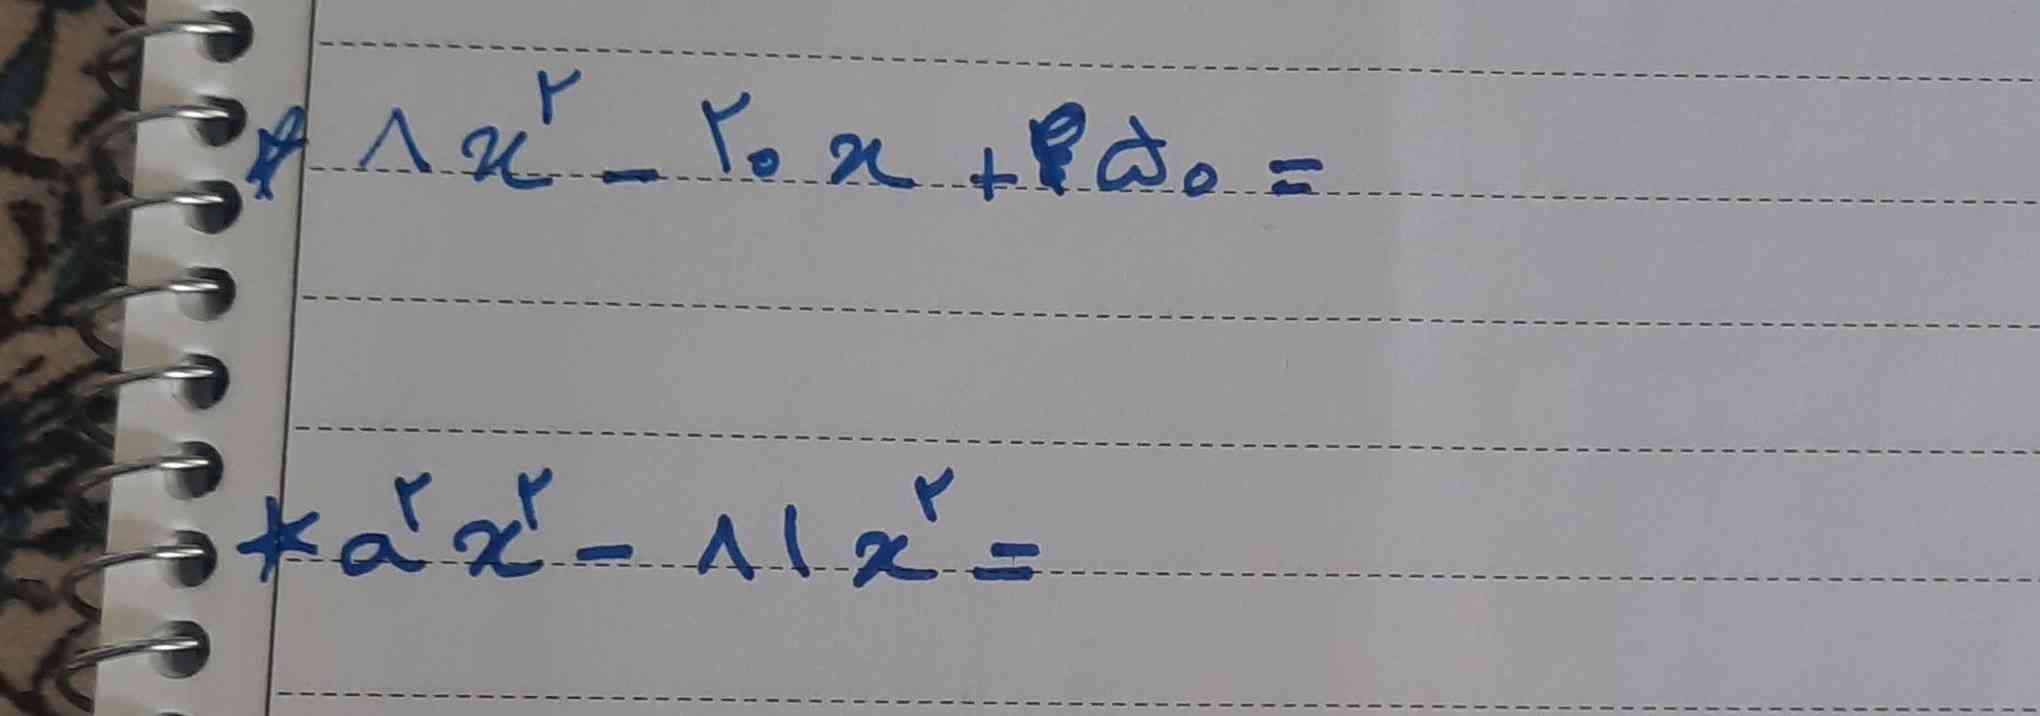 * ۸x^۲ - ۲۰x + ۵۰ =
* a^۲x^۲ - ۸۱x^۲ =